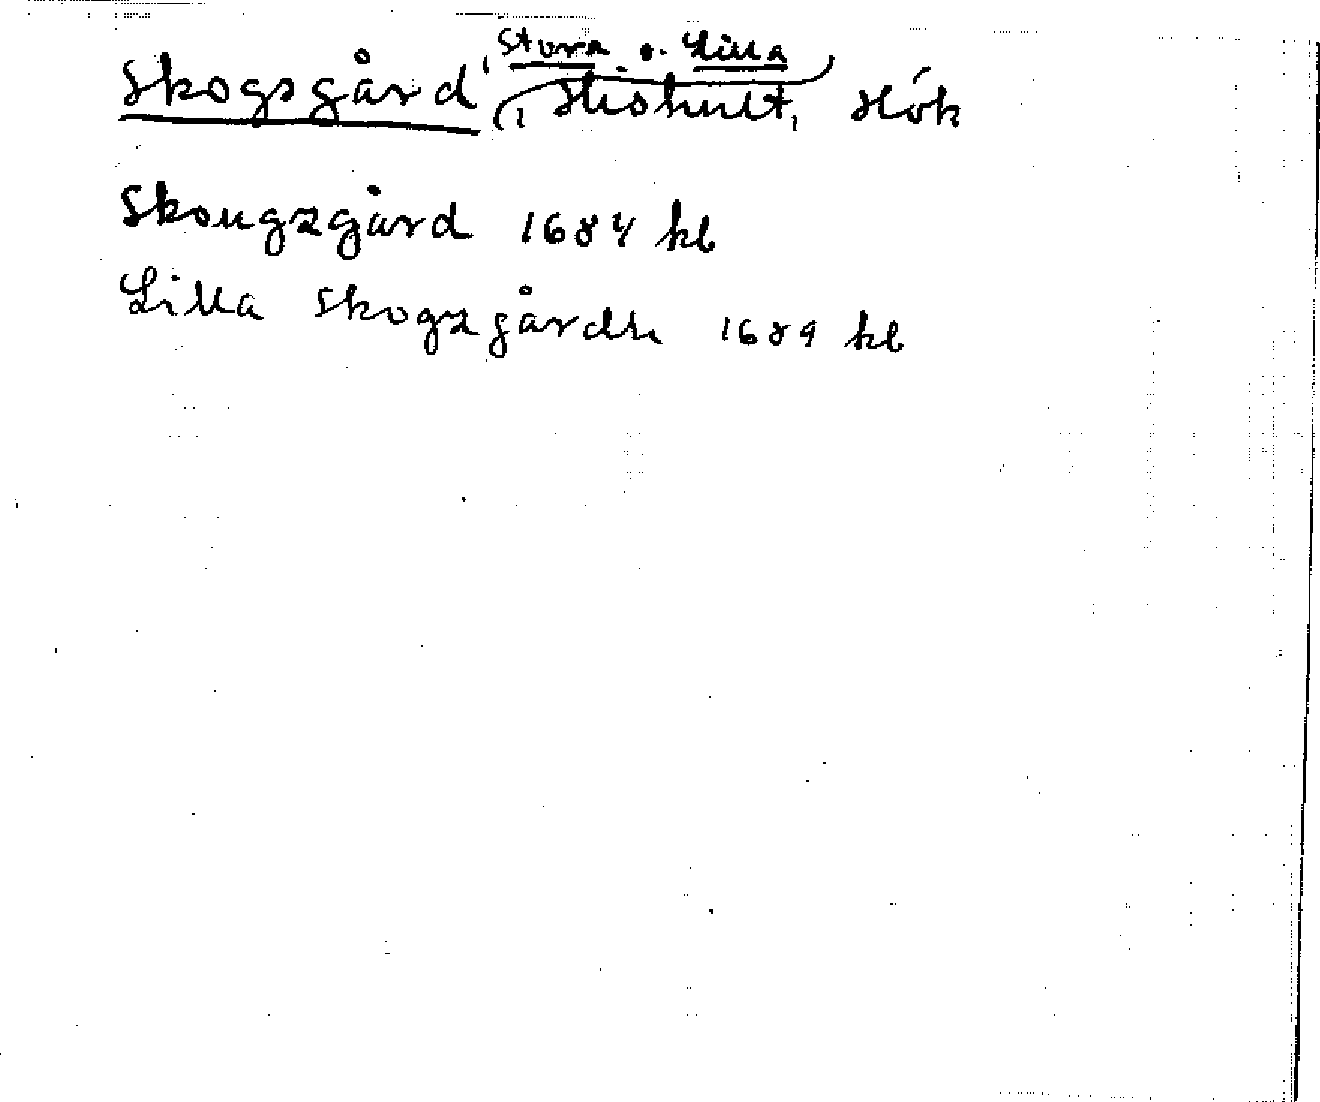 Skogsgård, Stora o. Lilla, Hishult, Hök
Skougzgård 1684 kb
Lilla Skogzgårdh 1689 kb